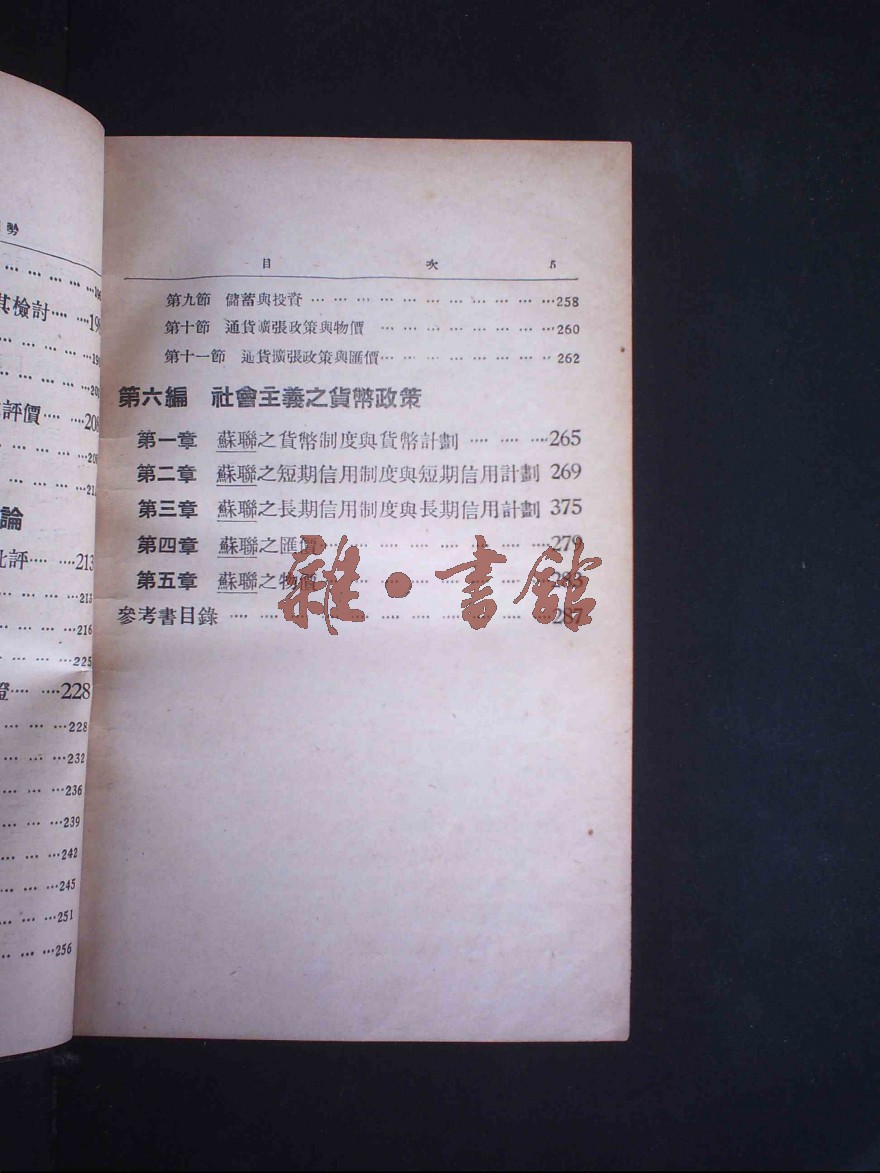 勢
其檢討…… …19
評價… …208
論
批評… …213
…213
…216
…225
證… …228
…228
…232
…236
…239
…242
…245
…251
…256
目 次 5
第九節 儲蓄與投資 … … … … … … … … … … …258
第十節 通貨擴張政策與物價 … … … … … … … …260
第十一節 通貨擴張政策與匯價… … … … … … … 262
第六編 社會主義之貨幣政策
第一章 蘇聯之貨幣制度與貨幣計劃 … … … …265
第二章 蘇聯之短期信用制度與短期信用計劃 269
第三章 蘇聯之長期信用制度與長期信用計劃 375
第四章 蘇聯之匯價… … … … … … … … …279
第五章 蘇聯之物價… … … … … … … … …283
參考書目錄 … … … … … … … … … … … …287
雜·書館